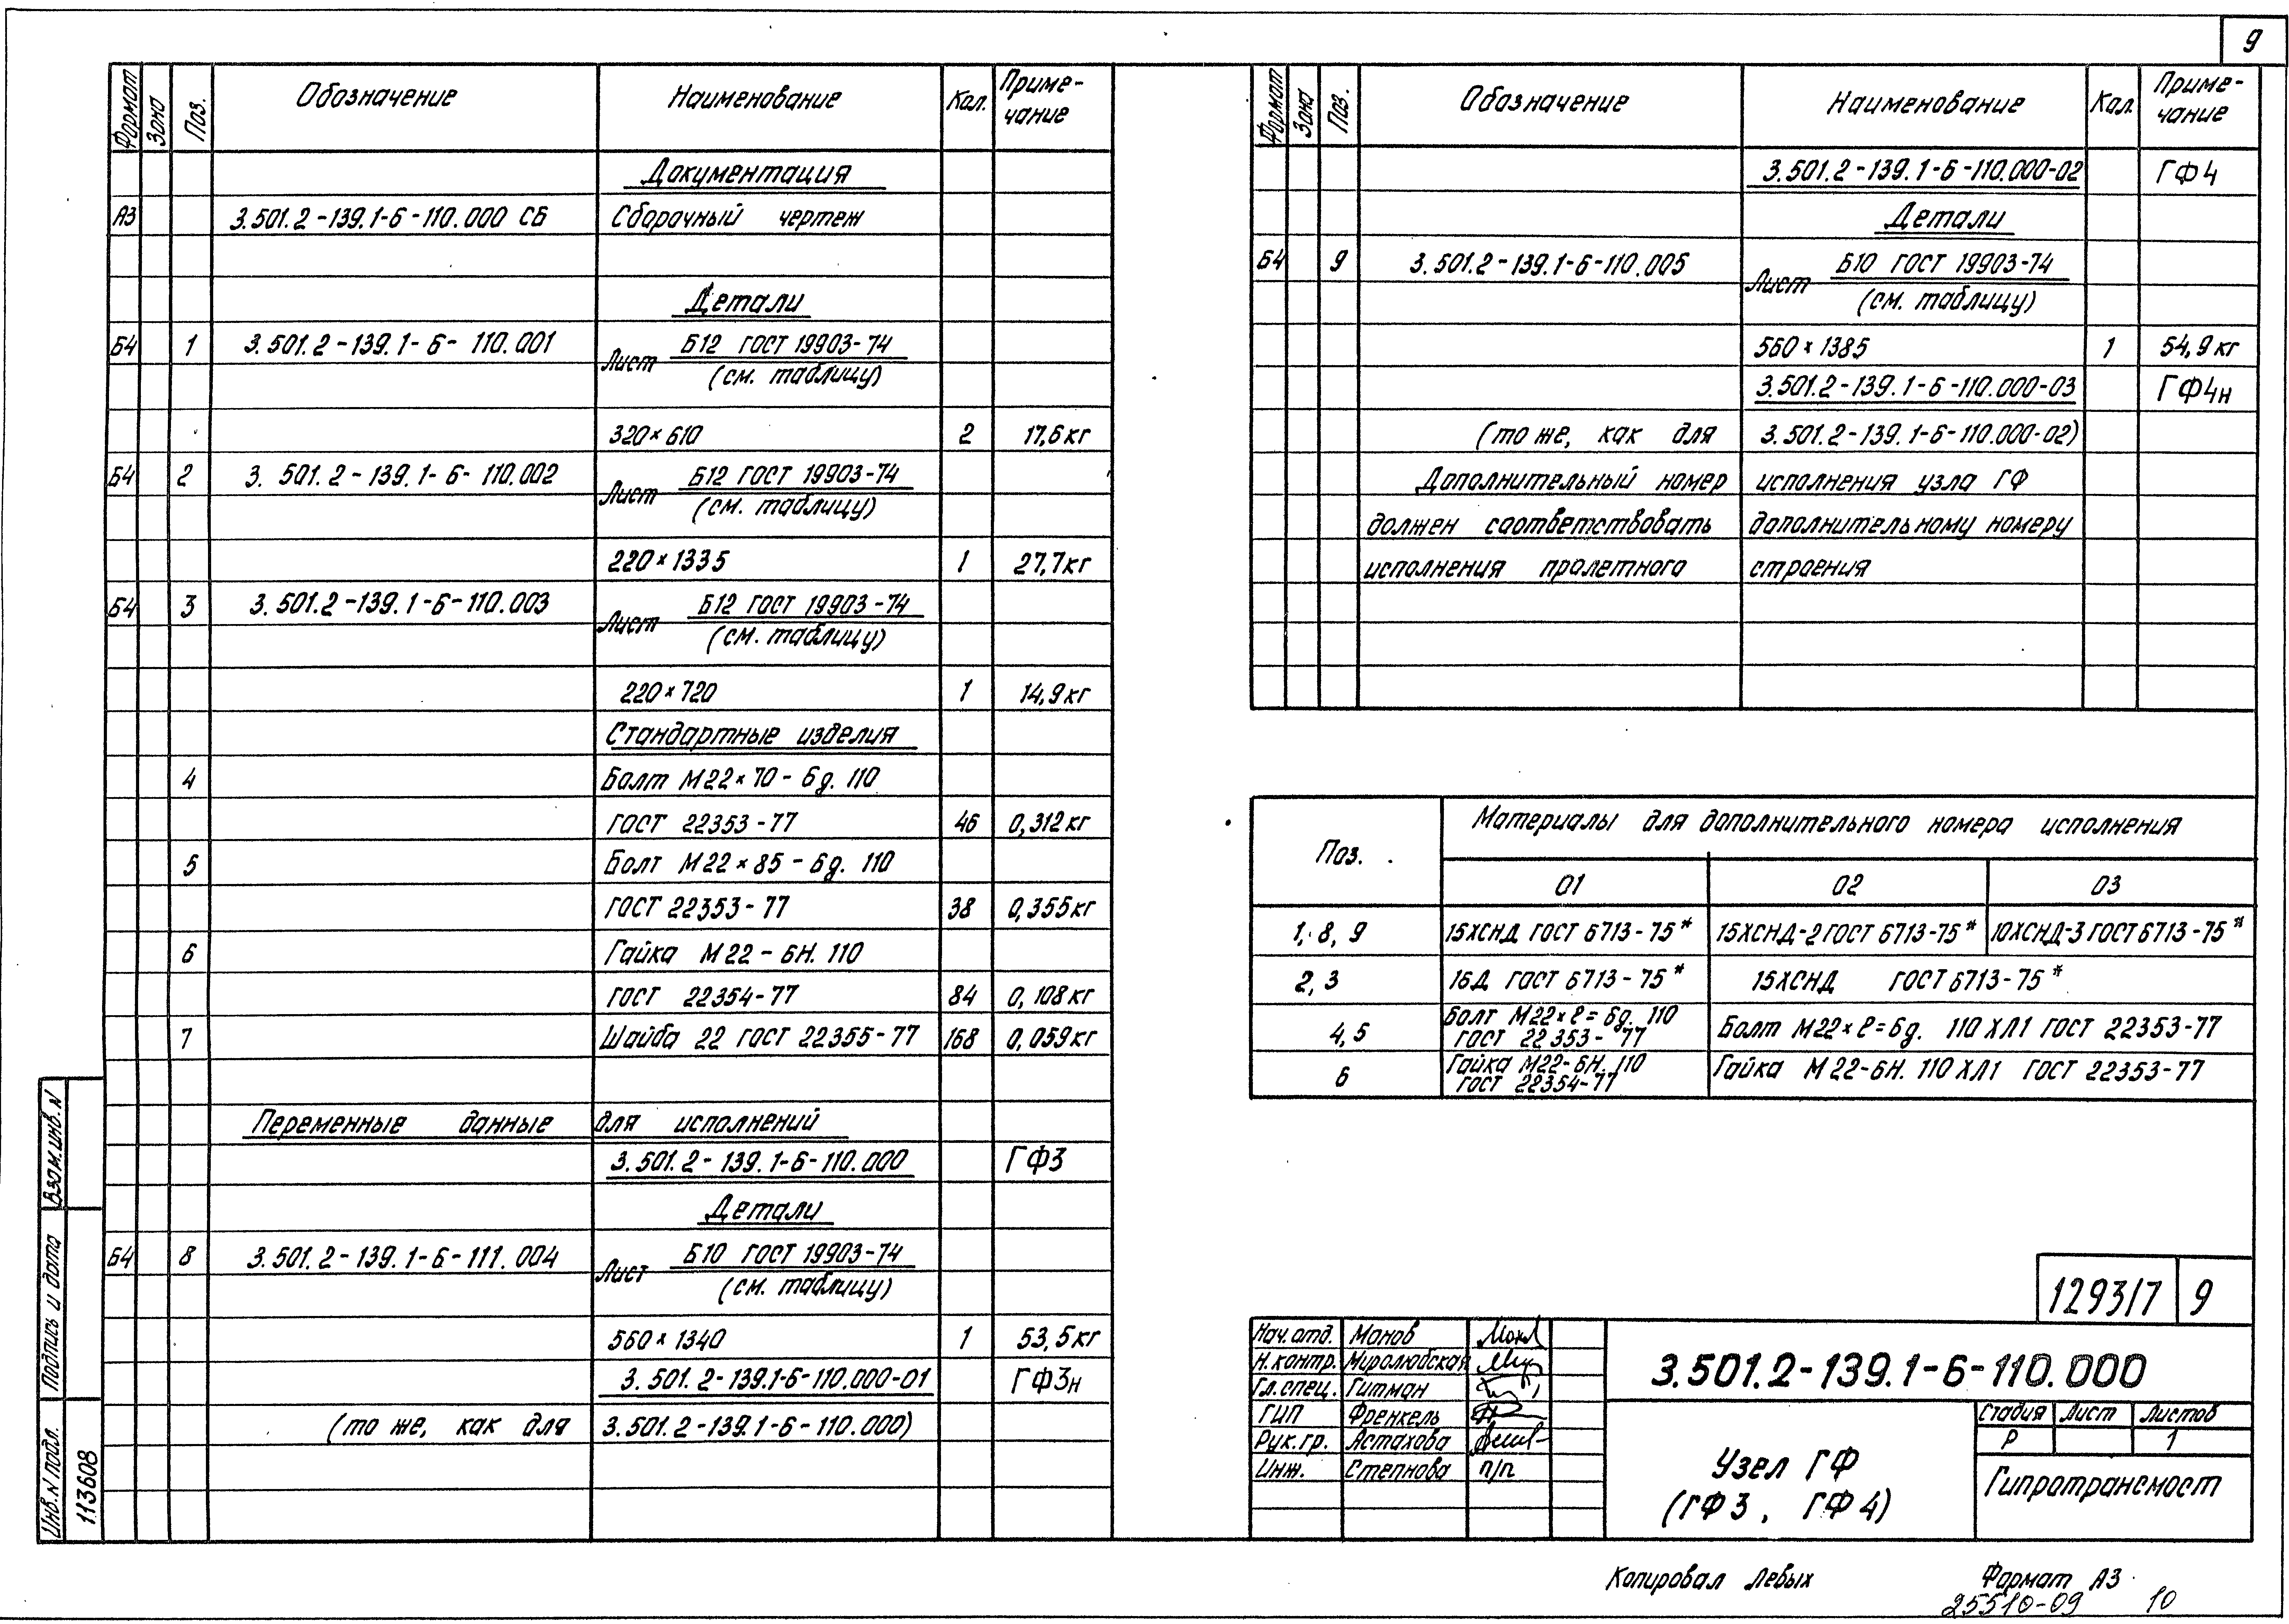 9
Формат Зона Поз. Обозначение Наименование Кол. Приме-
чание
Документация
А3 3.501.2-139.1-6-110.000 СБ Сборочный чертеж
Детали
Б4 1 3.501.2-139.1-6-110.001 Лист Б12 ГОСТ 19903-74
(см. таблицу)
320×610 2 17,6кг
Б4 2 3.501.2-139.1-6-110.002 Лист Б12 ГОСТ 19903-74
(см. таблицу)
220×1335 1 27,7кг
Б4 3 3.501.2-139.1-6-110.003 Лист Б12 ГОСТ 19903-74
(см. таблицу)
220×720 1 14,9кг
Стандартные изделия
4 Болт М22×70-6g.110
ГОСТ 22353-77 46 0,312кг
5 Болт М22×85-6g.110
ГОСТ 22353-77 38 0,355кг
6 Гайка М22-6Н.110
ГОСТ 22354-77 84 0,108кг
7 Шайба 22 ГОСТ 22355-77 168 0,059кг
Переменные данные для исполнений
3.501.2-139.1-6-110.000 ГФ3
Детали
Б4 8 3.501.2-139.1-6-111.004 Лист Б10 ГОСТ 19903-74
(см. таблицу)
560×1340 1 53,5кг
3.501.2-139.1-6-110.000-01 ГФ3н
(то же, как для 3.501.2-139.1-6-110.000)
Взам.инв.N
Подпись и дата
Инв.N подл.
113608
Формат Зона Поз. Обозначение Наименование Кол. Приме-
чание
3.501.2-139.1-6-110.000-02 ГФ4
Детали
Б4 9 3.501.2-139.1-6-110.005 Лист Б10 ГОСТ 19903-74
(см. таблицу)
560×1385 1 54,9кг
3.501.2-139.1-6-110.000-03 ГФ4н
(то же, как для 3.501.2-139.1-6-110.000-02)
Дополнительный номер исполнения узла ГФ
должен соответствовать дополнительному номеру
исполнения пролетного строения
Поз. Материалы для дополнительного номера исполнения
01 02 03
1, 8, 9 15ХСНД ГОСТ 6713-75* 15ХСНД-2 ГОСТ 6713-75* 10ХСНД-3 ГОСТ 6713-75*
2, 3 16Д ГОСТ 6713-75* 15ХСНД ГОСТ 6713-75*
4, 5 Болт М22×ℓ=6g.110
ГОСТ 22353-77 Болт М22×ℓ=6g. 110 ХЛ1 ГОСТ 22353-77
6 Гайка М22-6Н.110
ГОСТ 22354-77 Гайка М22-6Н.110 ХЛ1 ГОСТ 22353-77
1293/7 9
Нач.отд. Монов
Н.контр. Миролюбская
Гл.спец. Гитман
ГИП Френкель
Рук.гр. Астахова
Инж. Степнова п/п
3.501.2-139.1-6-110.000
Узел ГФ
(ГФ3, ГФ4)
Стадия Лист Листов
Р 1
Гипротрансмост
Копировал Левых Формат А3
25510-09 10